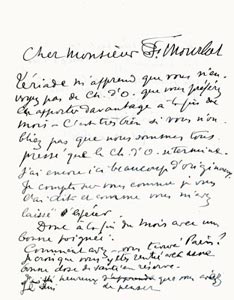 Cher Monsieur F. Mourlot
Tériade m'apprend que vous n'en-
voyez pas de Ch. d'O. que vous préférez
en apporter davantage à la fin du
mois - C'est très bien si vous n'ou-
bliez pas que nous sommes tous
pressés que le Ch. d'O. se termine.
J'ai encore ici beaucoup d'originaux.
Je compte sur vous comme je vous
l'ai dit et comme vous m'avez
laissé l'espoir
Donc à la fin du mois avec une
bonne poignée.
Comment avez-vous trouvé Paris?
Je crois que vous y êtes rentré avec une
bonne dose de santé en réserve.
J'ai été heureux d'apprendre que vous
de penser